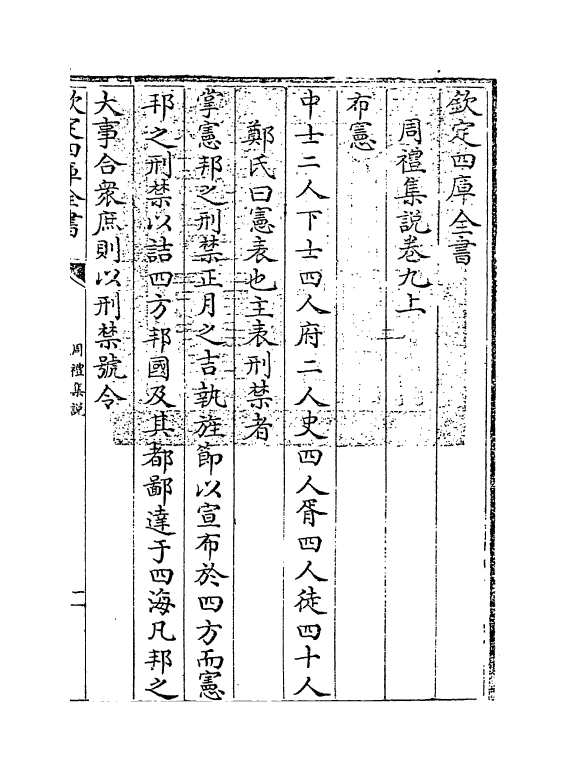 欽定四庫全書
周禮集説卷九上
布憲
中士二人下士四人府二人史四人胥四人徒四十人
鄭氏曰憲表也主表刑禁者
掌憲邦之刑禁正月之吉執旌節以宣布於四方而憲
邦之刑禁以詰四方邦國及其都鄙達于四海凡邦之
大事合衆庶則以刑禁號令
欽定四庫全書
周禮集説
二